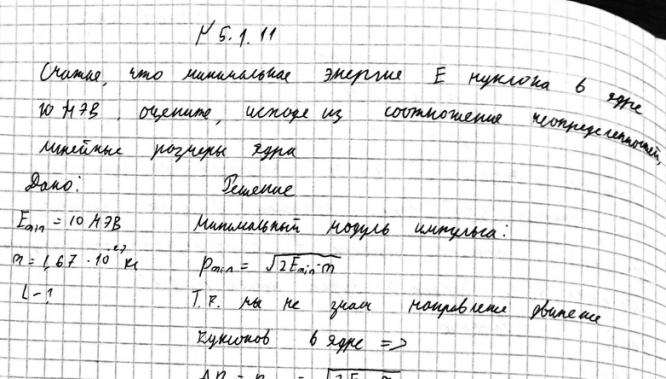 № 5.1.11
Считая, что минимальная энергия E нуклона в ядре
10 МэВ, оцените, исходя из соотношения неопределенностей,
линейные размеры ядра
Дано: Решение
Emin = 10 МэВ Минимальный модуль импульса:
m = 1,67 · 10⁻²⁷ кг pmin = √2Emin·m
L - ? Т.к. мы не знаем направление движения
нуклонов в ядре =>